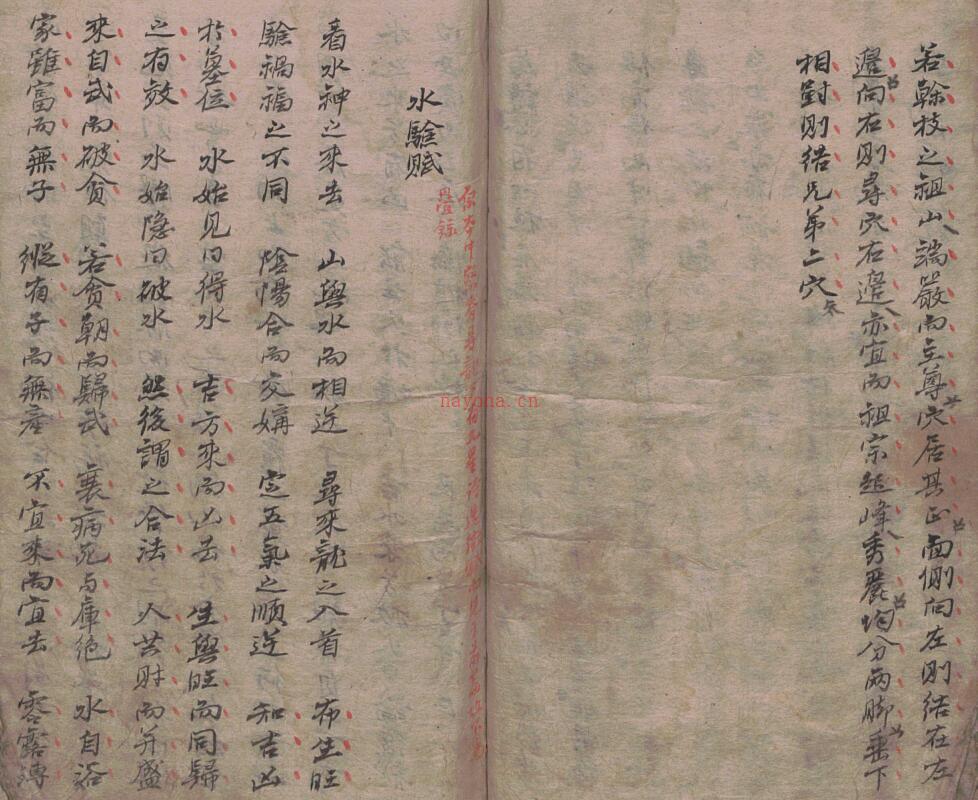 若幹枝之祖山端嚴而主尊穴居其正面側向左則結在左
邉向右則尋穴右邉亦宜而祖宗起峰秀麗均分兩脚垂下
相對則結兄弟二穴矣
水驗賦
看水神之來去 山與水而相送 尋來龍之入首 布生旺
驗禍福之不同 陰陽合而交媾 定五氣之順逆 知吉凶
於墓位 水始見曰得水 吉方來而凶去 生與旺而同歸
之有效 水始隱曰破水 然後謂之合法 人苦財而并盛
來自武而破貪 若貪朝而歸武 衰病死与庫絕 水自浴
家雖富而無子 縱有子而無產 不宜來而宜去 零露溥
nayona.cn